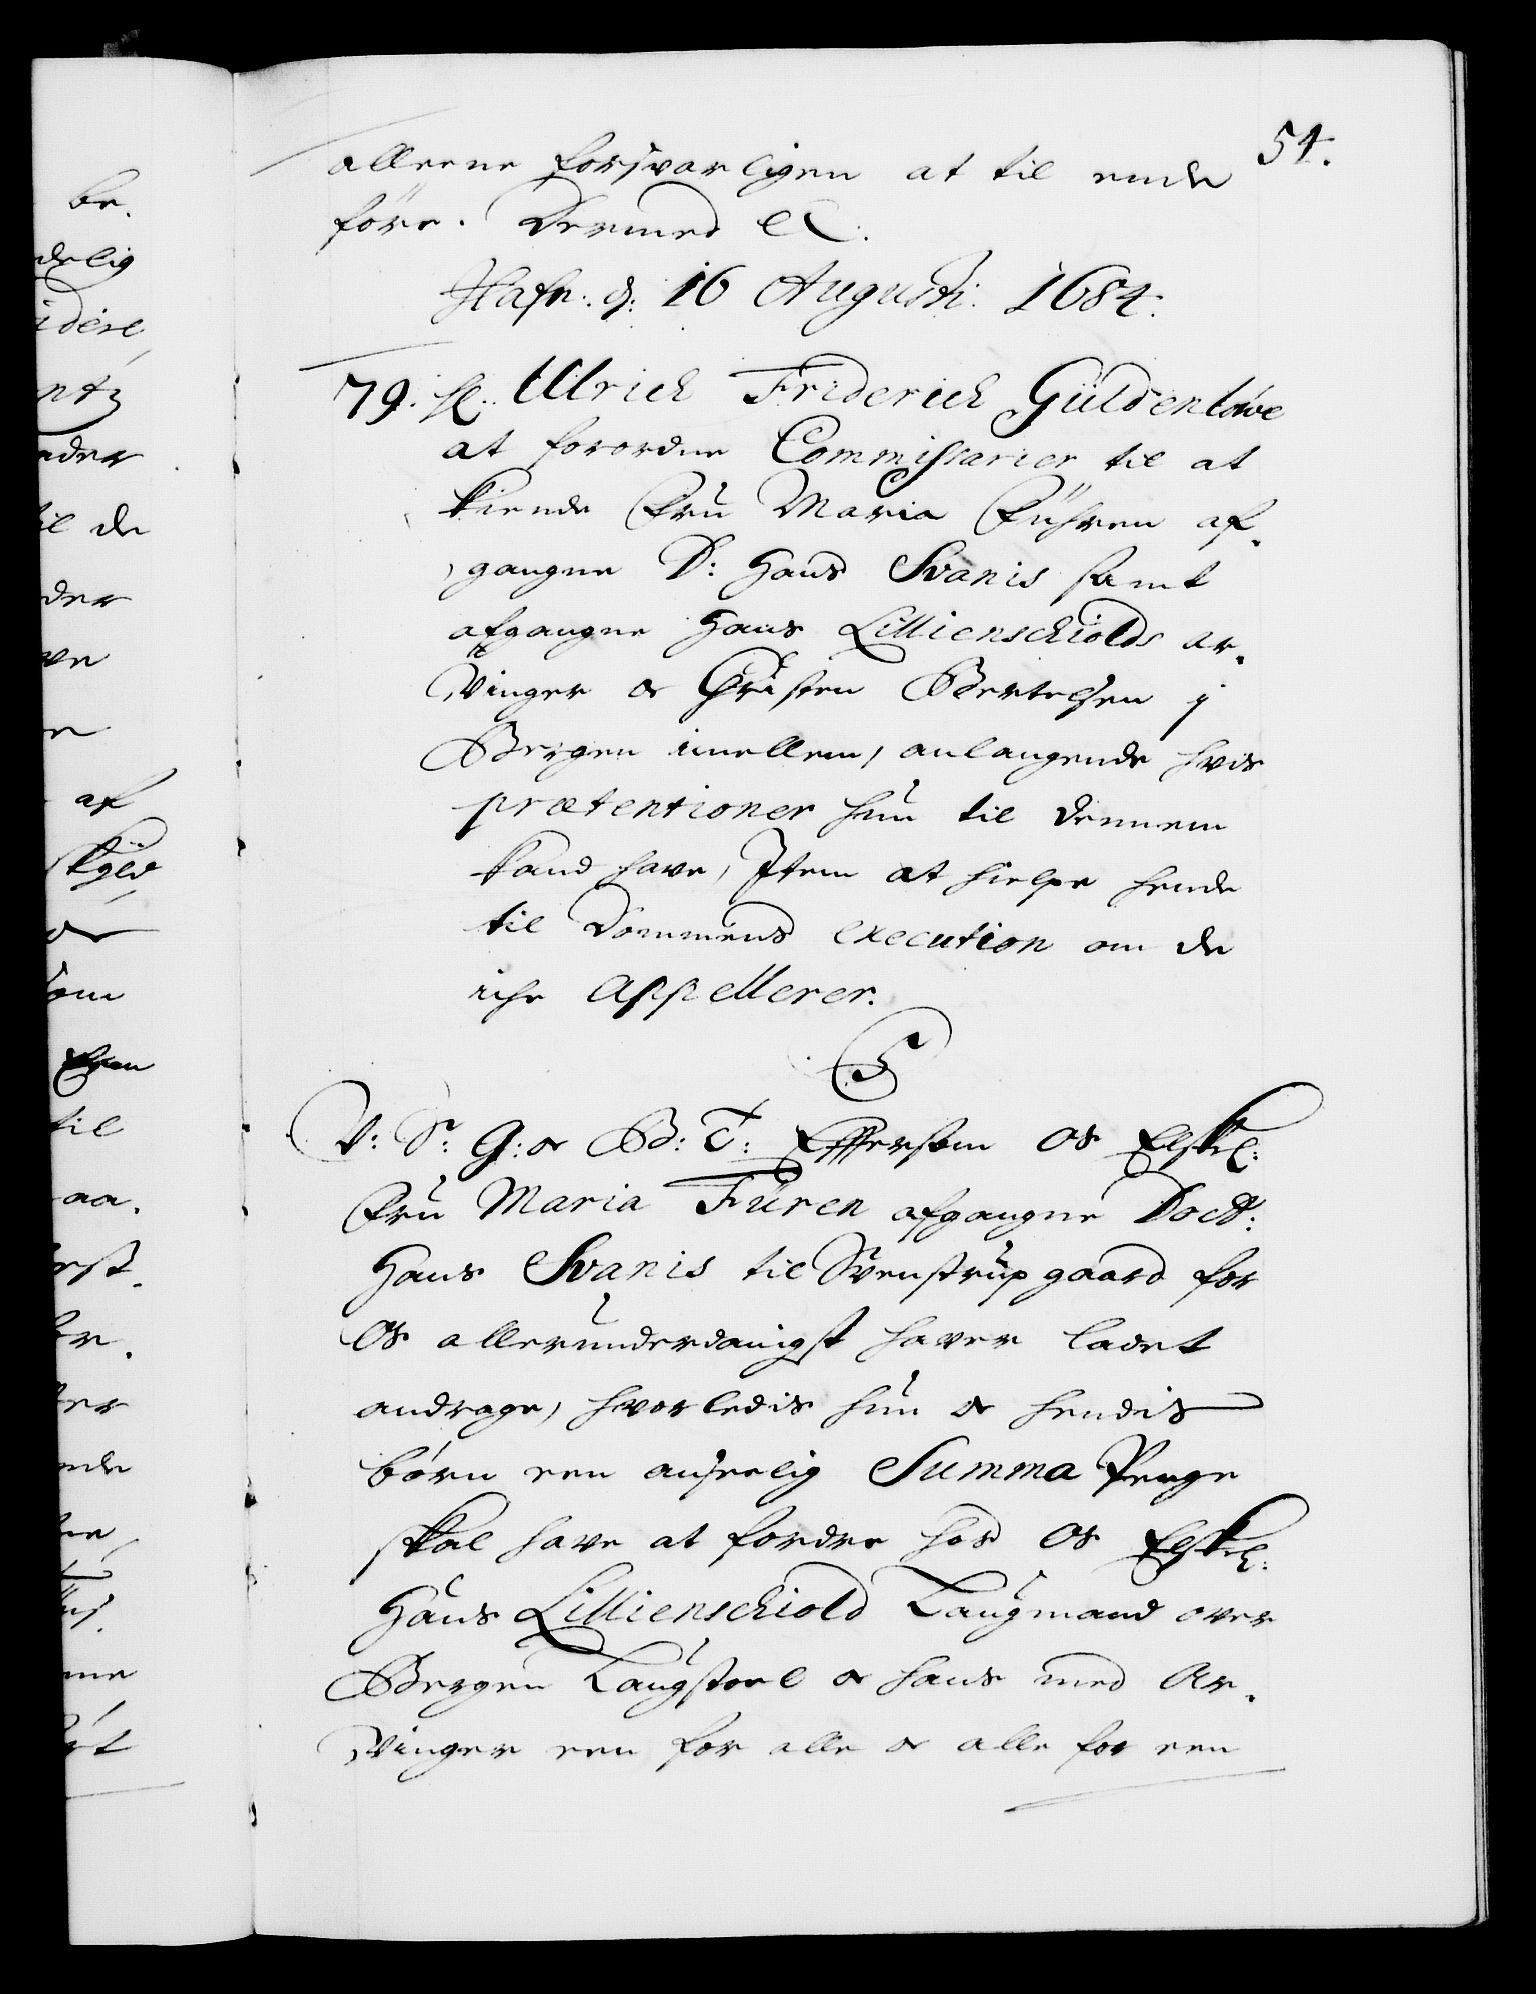 54.
alleene forsvarligen at til ende
före. Dermed &c.
Hafn: d: 16 Augusti. 1684.
79. Ulrich Friderich Güldenlöwe
at forordne Commissarier til at
kiende Fru Maria Führen af-
gangne D: Hans Svanis samt
afgangne Hans Lillienschiolds ar-
vinger og Christen Bertelsen i
Bergen imellem, anlangende hvis
prætentioner hun til dennem
kand have, Item at hielpe hende
til Dommens execution om de
iche Appellerer.
C5
V: S: G: og B: T: Eftersom Os Elskel:
Fru Maria Füren afgangne Doct:
Hans Svanis til Svenstrup gaard for
Os allerunderdanigst haver ladet
andrage, hvorledis hun og hendis
börn een anseelig Summa Penge
skal have at fordre hos Os Elskel:
Hans Lillienschiold Laugmand over
Bergen Laugstoel og hans med Ar-
vinger een for alle og alle for een
be-
delig
idere
ntz
nder
til de
der
ve
e
af
skyld
og
som
til
aa-
erst-
er-
ter
nde
me